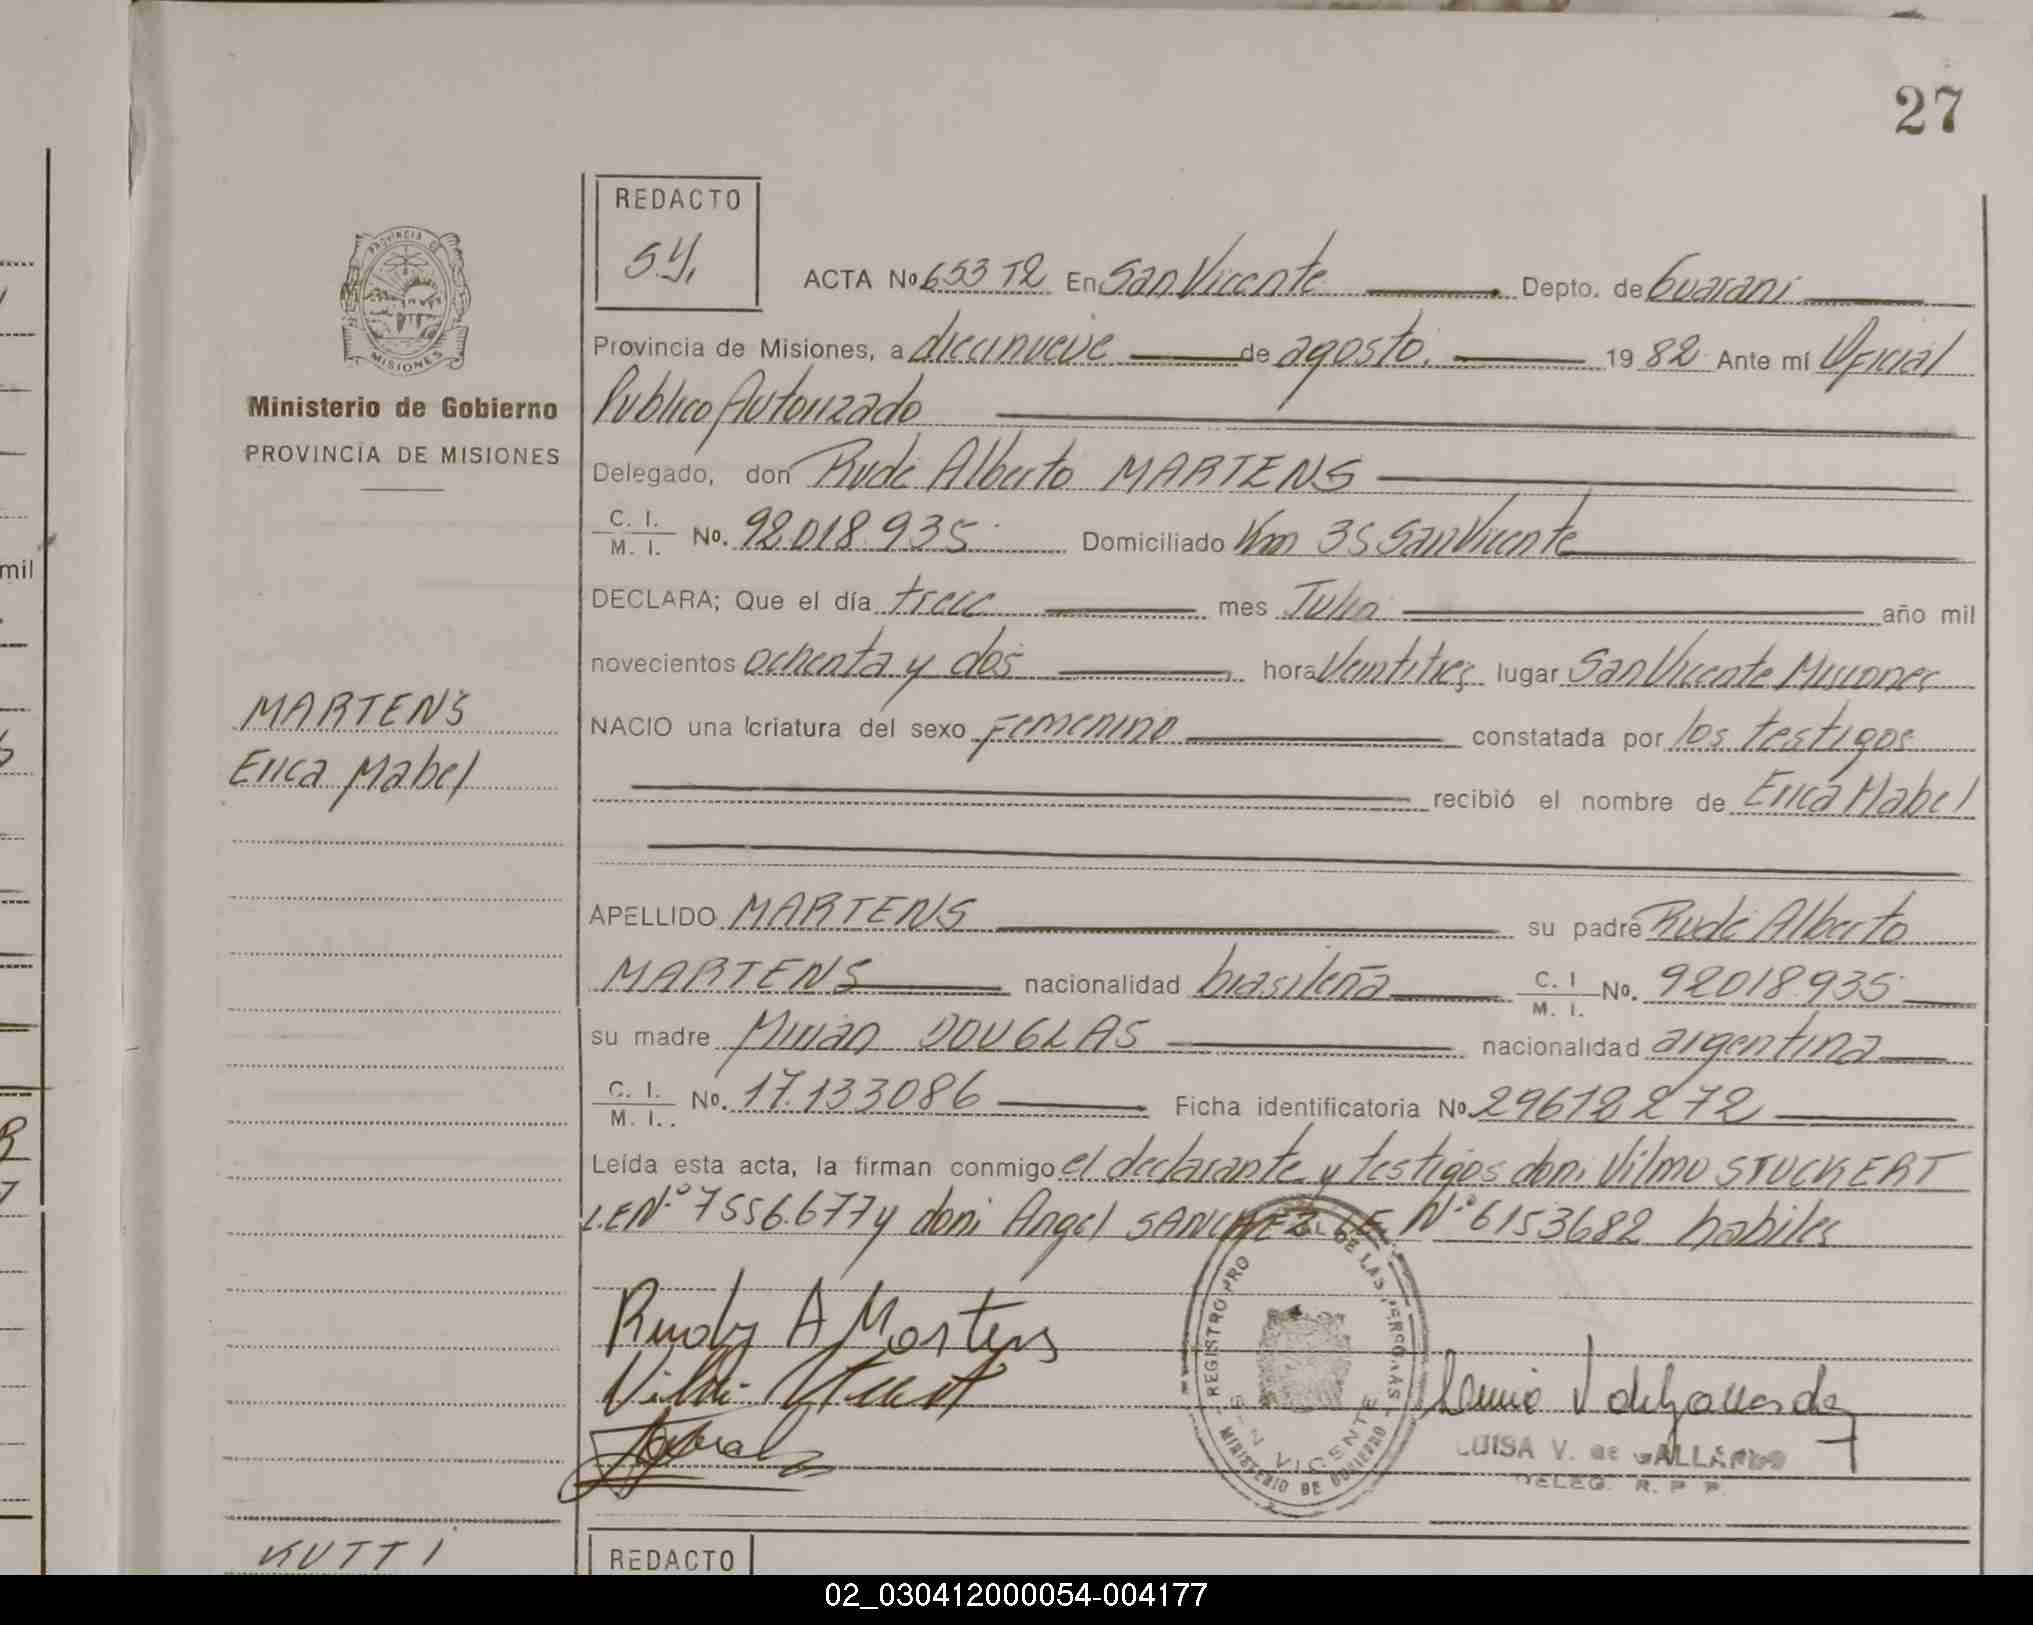 27
REDACTO
S.Y.
PROVINCIA DE
MISIONES
Ministerio de Gobierno
PROVINCIA DE MISIONES
ACTA No 653 T2 En San Vicente Depto. de Guarani
Provincia de Misiones, a diecinueve de agosto. 19 82 Ante mí Oficial
Publico Autorizado
Delegado, don Rudi Alberto MARTENS
C. I.
M. I. No. 92.018.935 Domiciliado Km 35 San Vicente
DECLARA; Que el día trece mes Julio año mil
novecientos ochenta y dos hora veintitres lugar San Vicente Misiones
MARTENS
NACIO una criatura del sexo femenino constatada por los testigos
Erica Mabel
recibió el nombre de Erica Mabel
APELLIDO MARTENS su padre Rudi Alberto
MARTENS nacionalidad brasileña C. I
M. I. No. 92018.935
su madre Mirian DOUGLAS nacionalidad argentina
C. I.
M. I. No. 17.133086 Ficha identificatoria No 29612272
Leída esta acta, la firman conmigo el declarante y testigos don: Vilmo STUCKERT
L.E Nº 7556.677 y don: Angel SANCHEZ LE Nº 6153682 habiles
Rudy A Martens
REGISTRO PRO AL DE LAS PERSONAS
SAN VICENTE
MINISTERIO DE GOBIERNO
LUISA V. de GALLARDO
DELEG. R. P. P.
KUTTI
REDACTO
mil
02_030412000054-004177